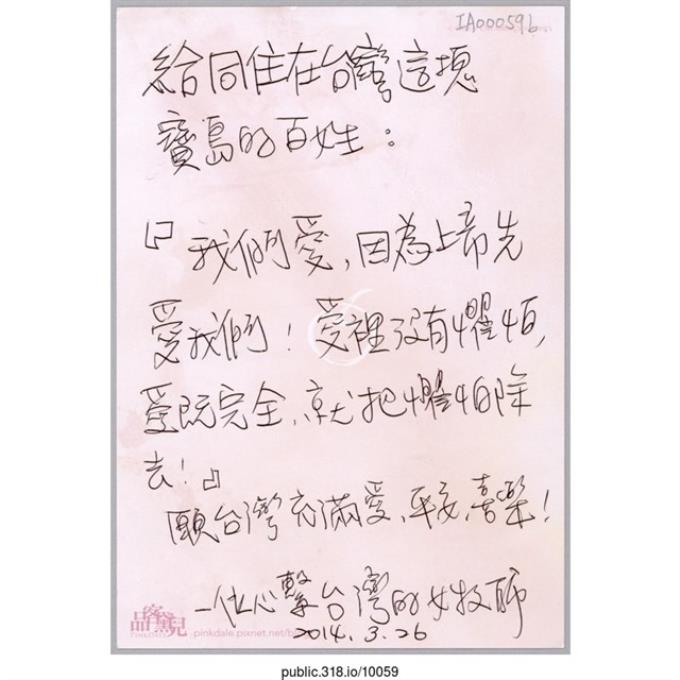 IA000596
給同住在台灣這塊
寶島的百姓：
『我們愛,因為上帝先
愛我們！愛裡沒有懼怕,
愛既完全,就把懼怕除
去！』
願台灣充滿愛、平安、喜樂！
一位心繫台灣的女牧師
2014.3.26
品客黛兒
PINKDALE
pinkdale.pixnet.net/b
public.318.io/10059